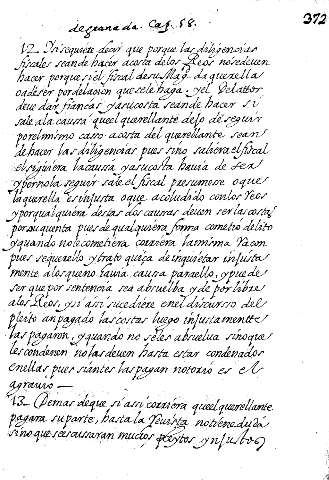 de granada. Cap. 58.
372
12 _ No se quite decir que porque las diligencias
fiscales se an de hacer a costa delos Reos no se deven
hacer porque si el fiscal de su Mag.d da querella
o a de ser por delacion que se le haga y el delattor
deve dar fiancas y a su costa se an de hacer si
sale a la causa que el querellante dejo de seguir
por el mismo caso a costa del querellante se an
de hacer las diligencias pues si no saliera el fiscal
el siguiera la causa y a su costa havia de ser
y por no la seguir sale el fiscal presumese o que
la querella es injusta o que a coludido con los Reos
y por qualquiera destas dos causas deven ser las costas
por su quenta pues de qualquiera forma cometio delito
y quando no le cometiera corriera la misma racon
pues se querello y trato de inquietar injusta
mente a los que no tavia causa para ello, y puede
ser que por sentencia sea absuelba y de por libre
a los Reos, y si asi sucediere en el discurso del
pleito an pagado las costas luego injustamente
las pagaron, y quando no se les absuelva sino que
les condenen no las deven hasta estar condenados
en ellas pues si antes las pagan notorio es el
agravio —
13 _ Demas de que si asi corriera que el querellante
pagara su parte, hasta la Revista no tiene duda
sino que se escussaran muchos pleytos ynjustos